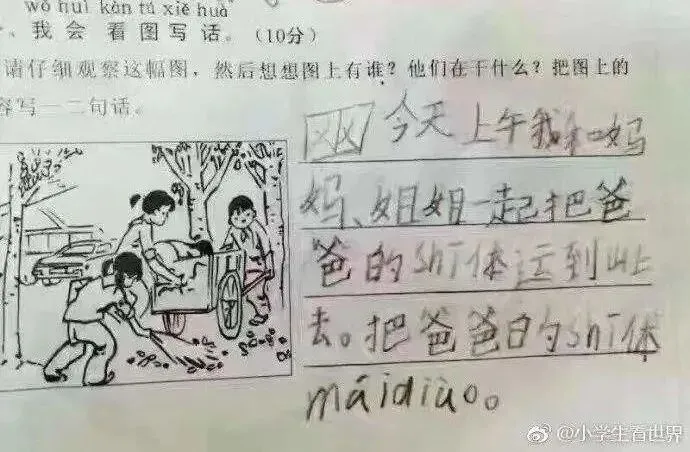 wǒ huì kàn tú xiě huà
、我会看图写话。(10分)
请仔细观察这幅图，然后想想图上有谁？他们在干什么？把图上的
容写一二句话。
今天上午我和妈
妈、姐姐一起把爸
爸的shī体运到山上
去。把爸爸的shī体
máidiào。
@小学生看世界